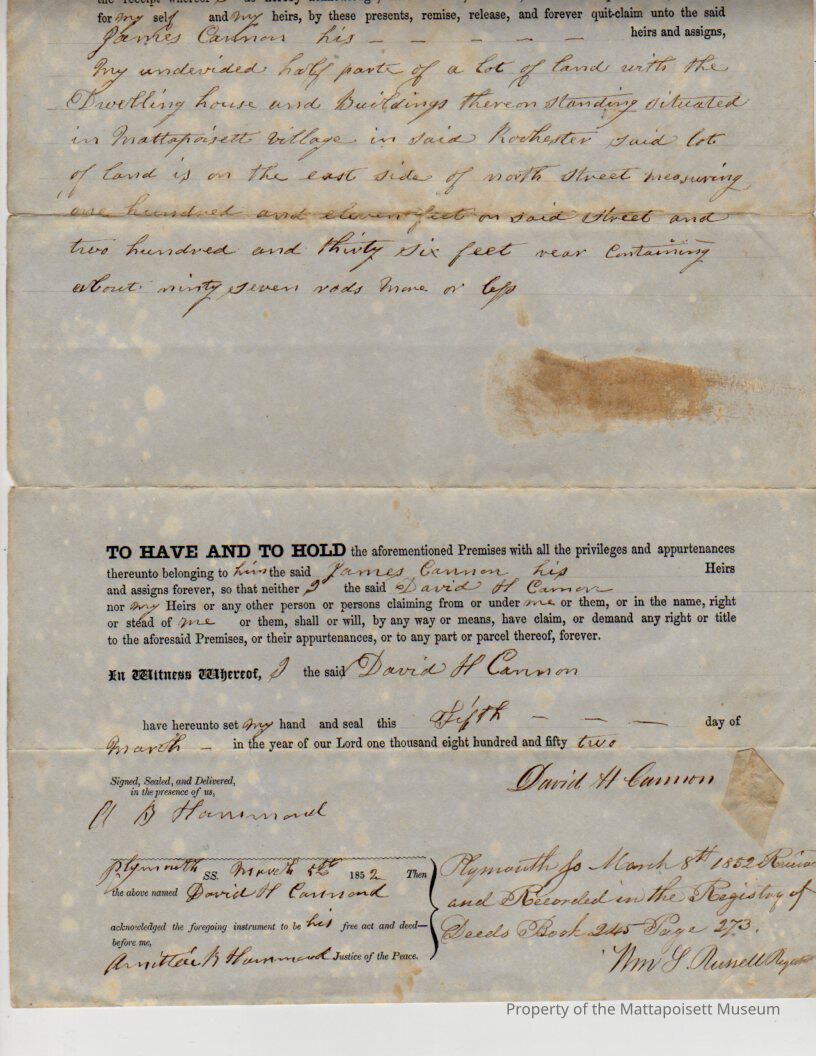 for my self and my heirs, by these presents, remise, release, and forever quit-claim unto the said
James Cannon his – – – – – – heirs and assigns,
My undevided half parte of a lot of land with the
Dwelling house and Buildings thereon standing situated
in Mattapoisett village in said Rochester said lot
of land is on the east side of north street measuring
one hundred and eleven feet on said street and
two hundred and thirty six feet rear containing
about ninty seven rods more or less
TO HAVE AND TO HOLD the aforementioned Premises with all the privileges and appurtenances
thereunto belonging to him the said James Cannon his Heirs
and assigns forever, so that neither I the said David H Cannon
nor my Heirs or any other person or persons claiming from or under me or them, or in the name, right
or stead of me or them, shall or will, by any way or means, have claim, or demand any right or title
to the aforesaid Premises, or their appurtenances, or to any part or parcel thereof, forever.
In Witness Whereof, I the said David H Cannon
have hereunto set my hand and seal this Fifth – – – day of
March – in the year of our Lord one thousand eight hundred and fifty two
Signed, Sealed, and Delivered,
in the presence of us,
David H Cannon
A B Hammond
Plymouth SS. March 5th 1852 Then
the above named David H Cannond
acknowledged the foregoing instrument to be his free act and deed—
before me,
B Hammond Justice of the Peace.
Plymouth Ss March 8th 1852
and Recorded in the Registry of
Deeds Book 245 Page 273.
Wm S. Russell
Property of the Mattapoisett Museum